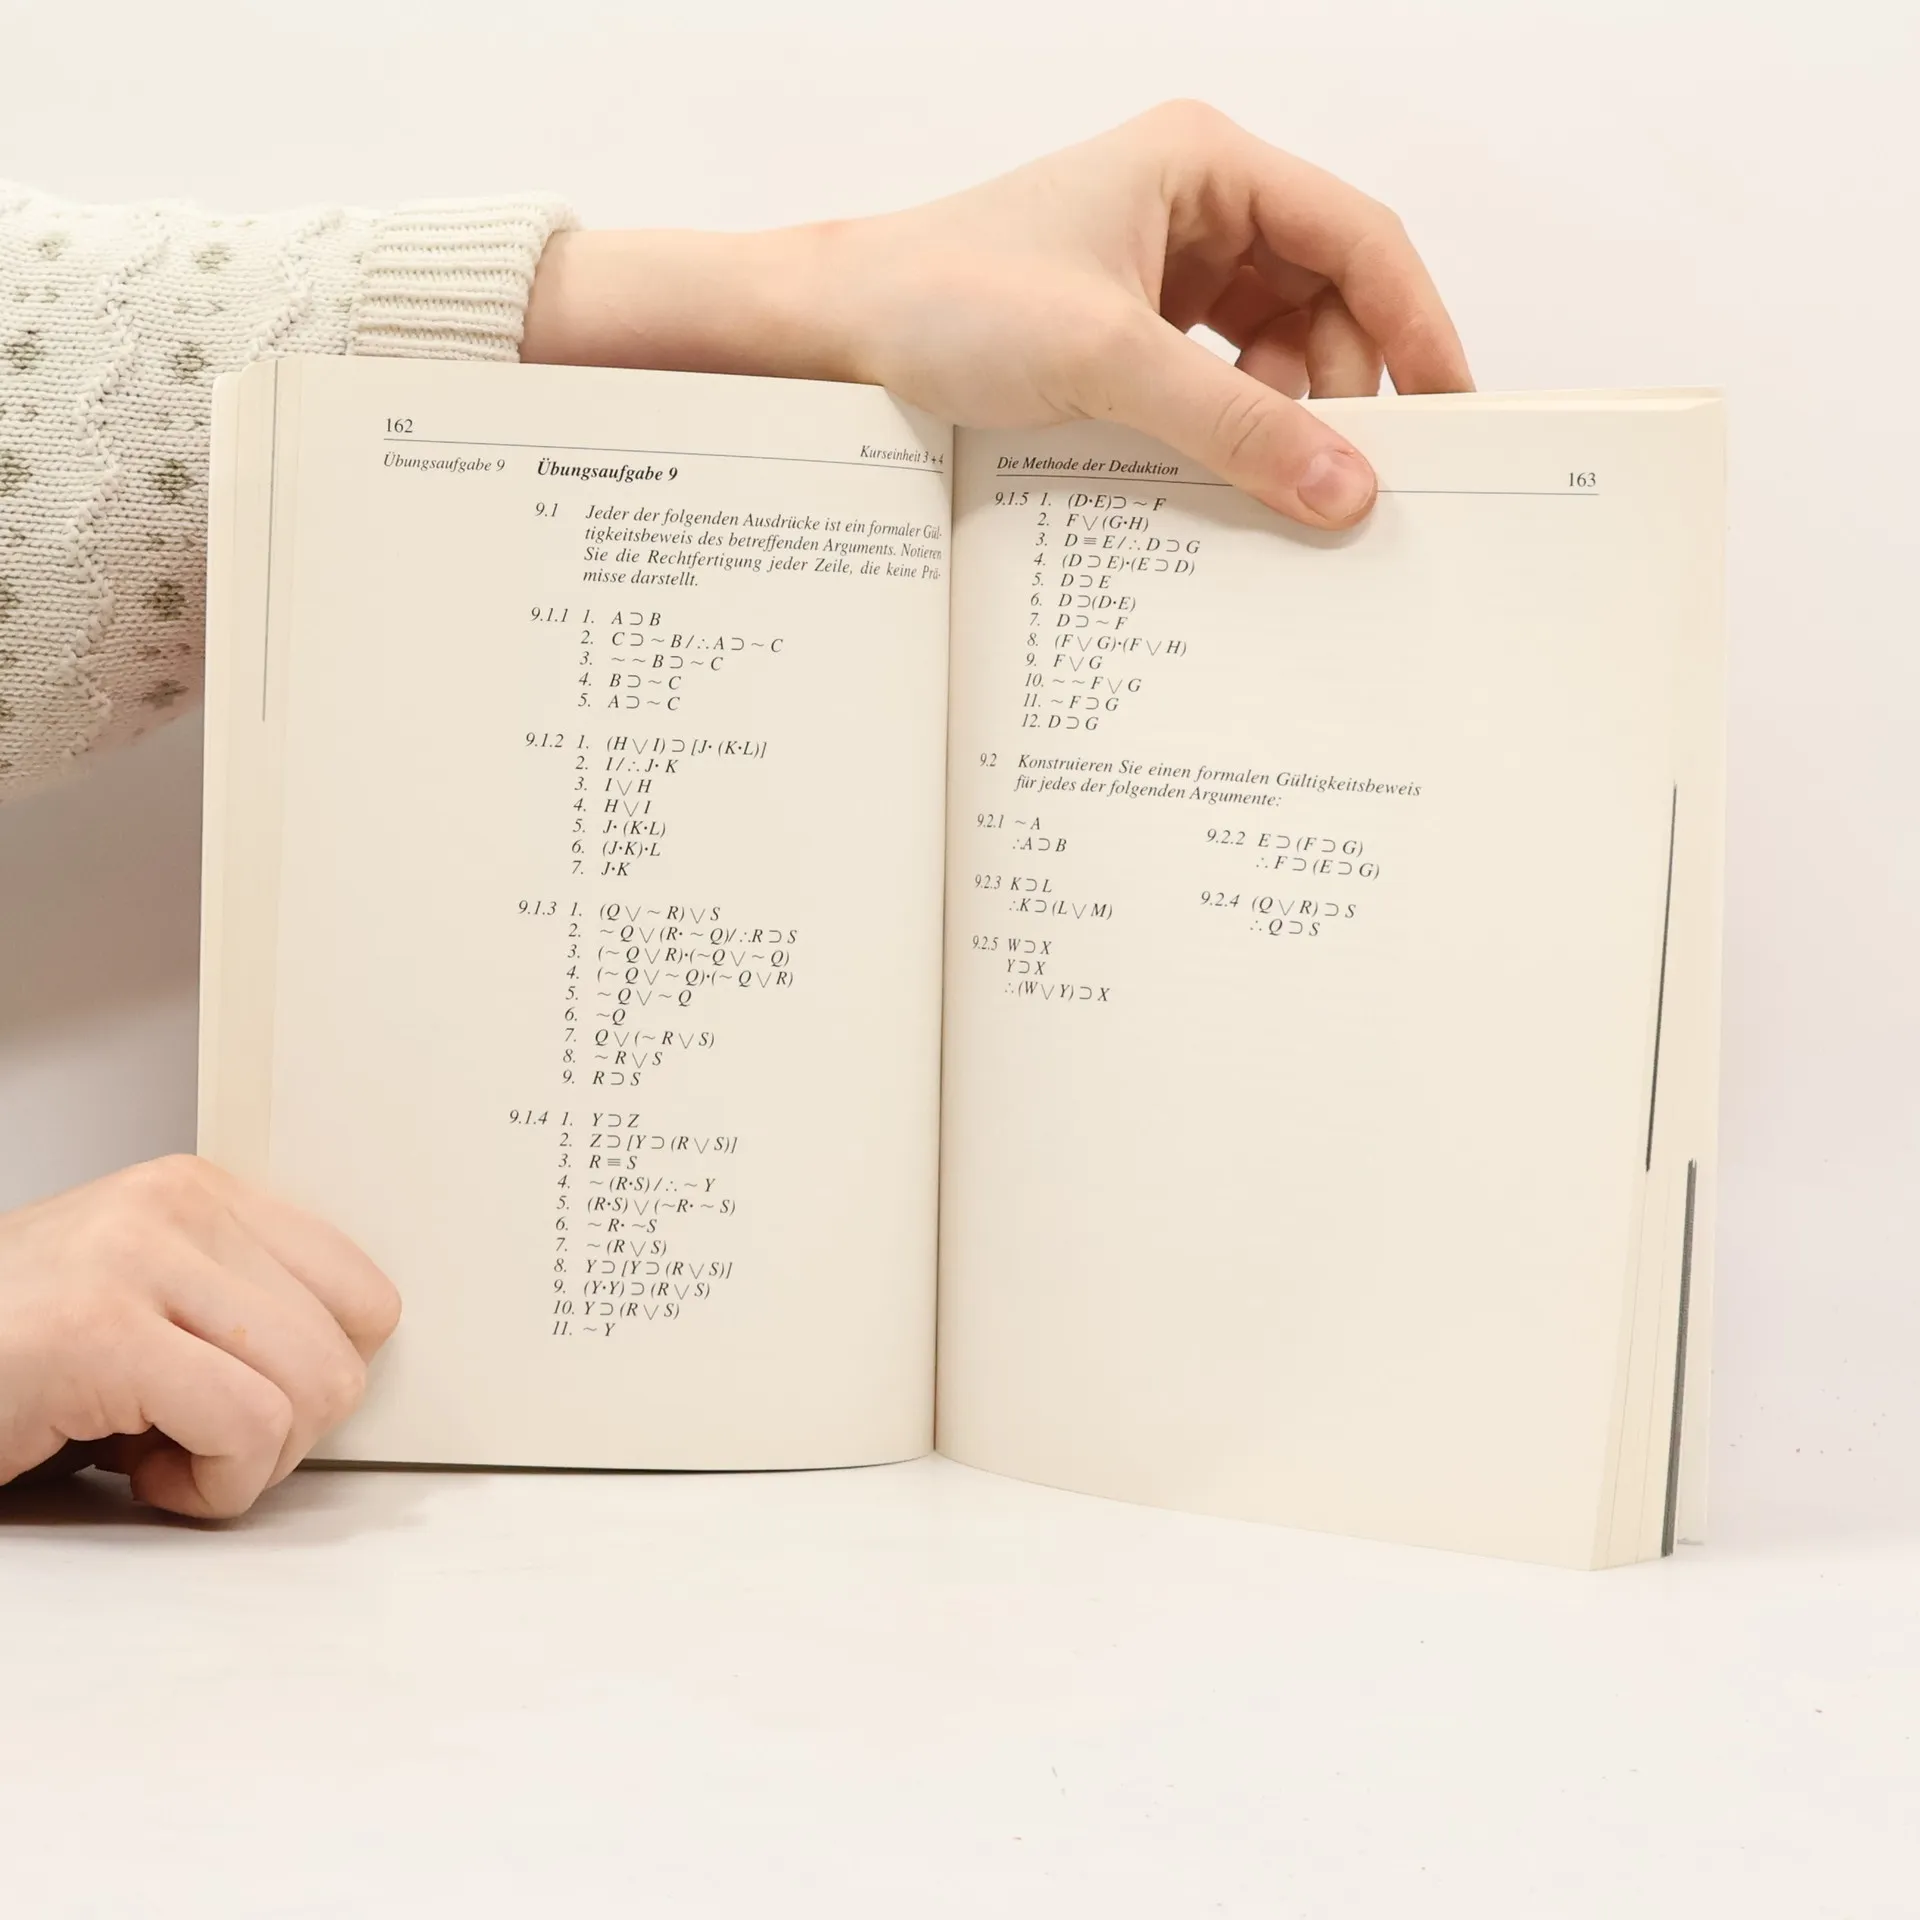 162
Kurseinheit 3 + 4
Übungsaufgabe 9
Übungsaufgabe 9
9.1 Jeder der folgenden Ausdrücke ist ein formaler Gül-
tigkeitsbeweis des betreffenden Arguments. Notieren
Sie die Rechtfertigung jeder Zeile, die keine Prä-
misse darstellt.
9.1.1 1. A ⊃ B
2. C ⊃ ~ B / ∴ A ⊃ ~ C
3. ~ ~ B ⊃ ~ C
4. B ⊃ ~ C
5. A ⊃ ~ C
9.1.2 1. (H ∨ I) ⊃ [J· (K·L)]
2. I / ∴ J· K
3. I ∨ H
4. H ∨ I
5. J· (K·L)
6. (J·K)·L
7. J·K
9.1.3 1. (Q ∨ ~ R) ∨ S
2. ~ Q ∨ (R· ~ Q)/ ∴R ⊃ S
3. (~ Q ∨ R)·(~Q ∨ ~ Q)
4. (~ Q ∨ ~ Q)·(~ Q ∨ R)
5. ~ Q ∨ ~ Q
6. ~Q
7. Q ∨ (~ R ∨ S)
8. ~ R ∨ S
9. R ⊃ S
9.1.4 1. Y ⊃ Z
2. Z ⊃ [Y ⊃ (R ∨ S)]
3. R ≡ S
4. ~ (R·S) / ∴ ~ Y
5. (R·S) ∨ (~R· ~ S)
6. ~ R· ~S
7. ~ (R ∨ S)
8. Y ⊃ [Y ⊃ (R ∨ S)]
9. (Y·Y) ⊃ (R ∨ S)
10. Y ⊃ (R ∨ S)
11. ~ Y
Die Methode der Deduktion
163
9.1.5 1. (D·E) ⊃ ~ F
2. F ∨ (G·H)
3. D ≡ E / ∴ D ⊃ G
4. (D ⊃ E)·(E ⊃ D)
5. D ⊃ E
6. D ⊃(D·E)
7. D ⊃ ~ F
8. (F ∨ G)·(F ∨ H)
9. F ∨ G
10. ~ ~ F ∨ G
11. ~ F ⊃ G
12. D ⊃ G
9.2 Konstruieren Sie einen formalen Gültigkeitsbeweis
für jedes der folgenden Argumente:
9.2.1 ~ A
∴A ⊃ B
9.2.2 E ⊃ (F ⊃ G)
∴ F ⊃ (E ⊃ G)
9.2.3 K ⊃ L
∴K ⊃ (L ∨ M)
9.2.4 (Q ∨ R) ⊃ S
∴ Q ⊃ S
9.2.5 W ⊃ X
Y ⊃ X
∴ (W ∨ Y) ⊃ X